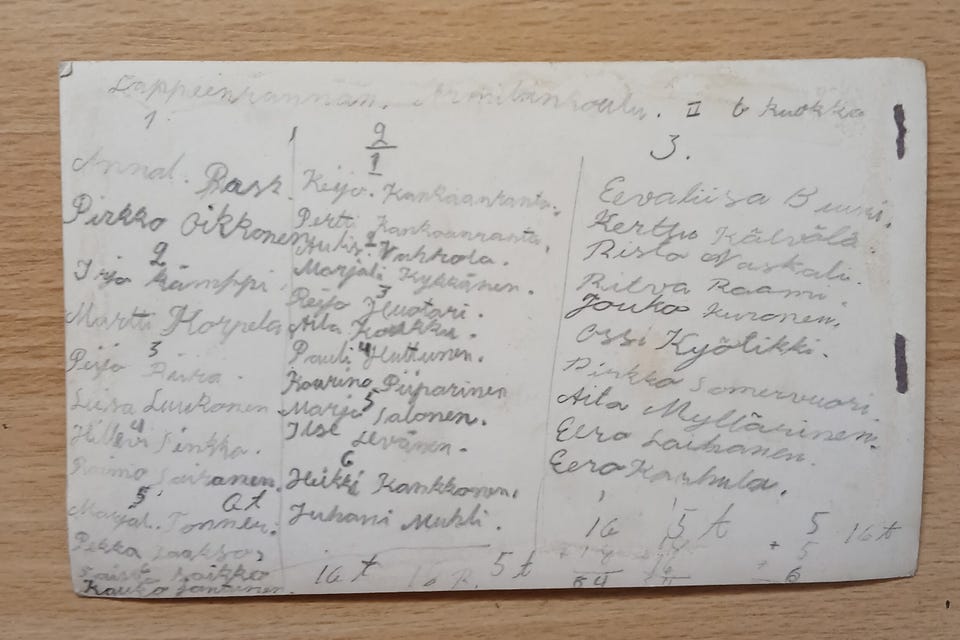 Lappeenrannan. Armilankoulu. II b luokka
1
Annal. Rask.
Pirkko Oikkonen
2
Irja Kämppi
Martti Horpela
3
Reijo
Liisa Luukonen
4
Hillevi Sinkko.
Raimo Saikanen.
5 6t
Marjal. Tonner.
Pekka Jaakso,
6
Raikko
Kauko Jantunen.
2
1
Reijo. Kankaanranta.
Pertti Kankaanranta.
2
Aulis Vuhkola.
Marjali Kykkänen.
3
Reijo Huotari.
Aila Koukku.
4
Pauli Huttunen.
Kaarina Piiparinen
5
Marja Salonen.
Ilse Levänen.
6
Heikki Kankkonen.
Juhani Muhli.
16 t 16 p. 5 t
3.
Eevaliisa
Kerttu Kälvälä
Risto Naskali.
Ritva Raami.
Jouko Kuronen.
Ossi Kyölikki.
Pirkko Somervuori.
Aila Myllärinen.
Eero Laihanen.
Eero Karhula.
16 5 t 5 16 t
+ 5
+ 6
64